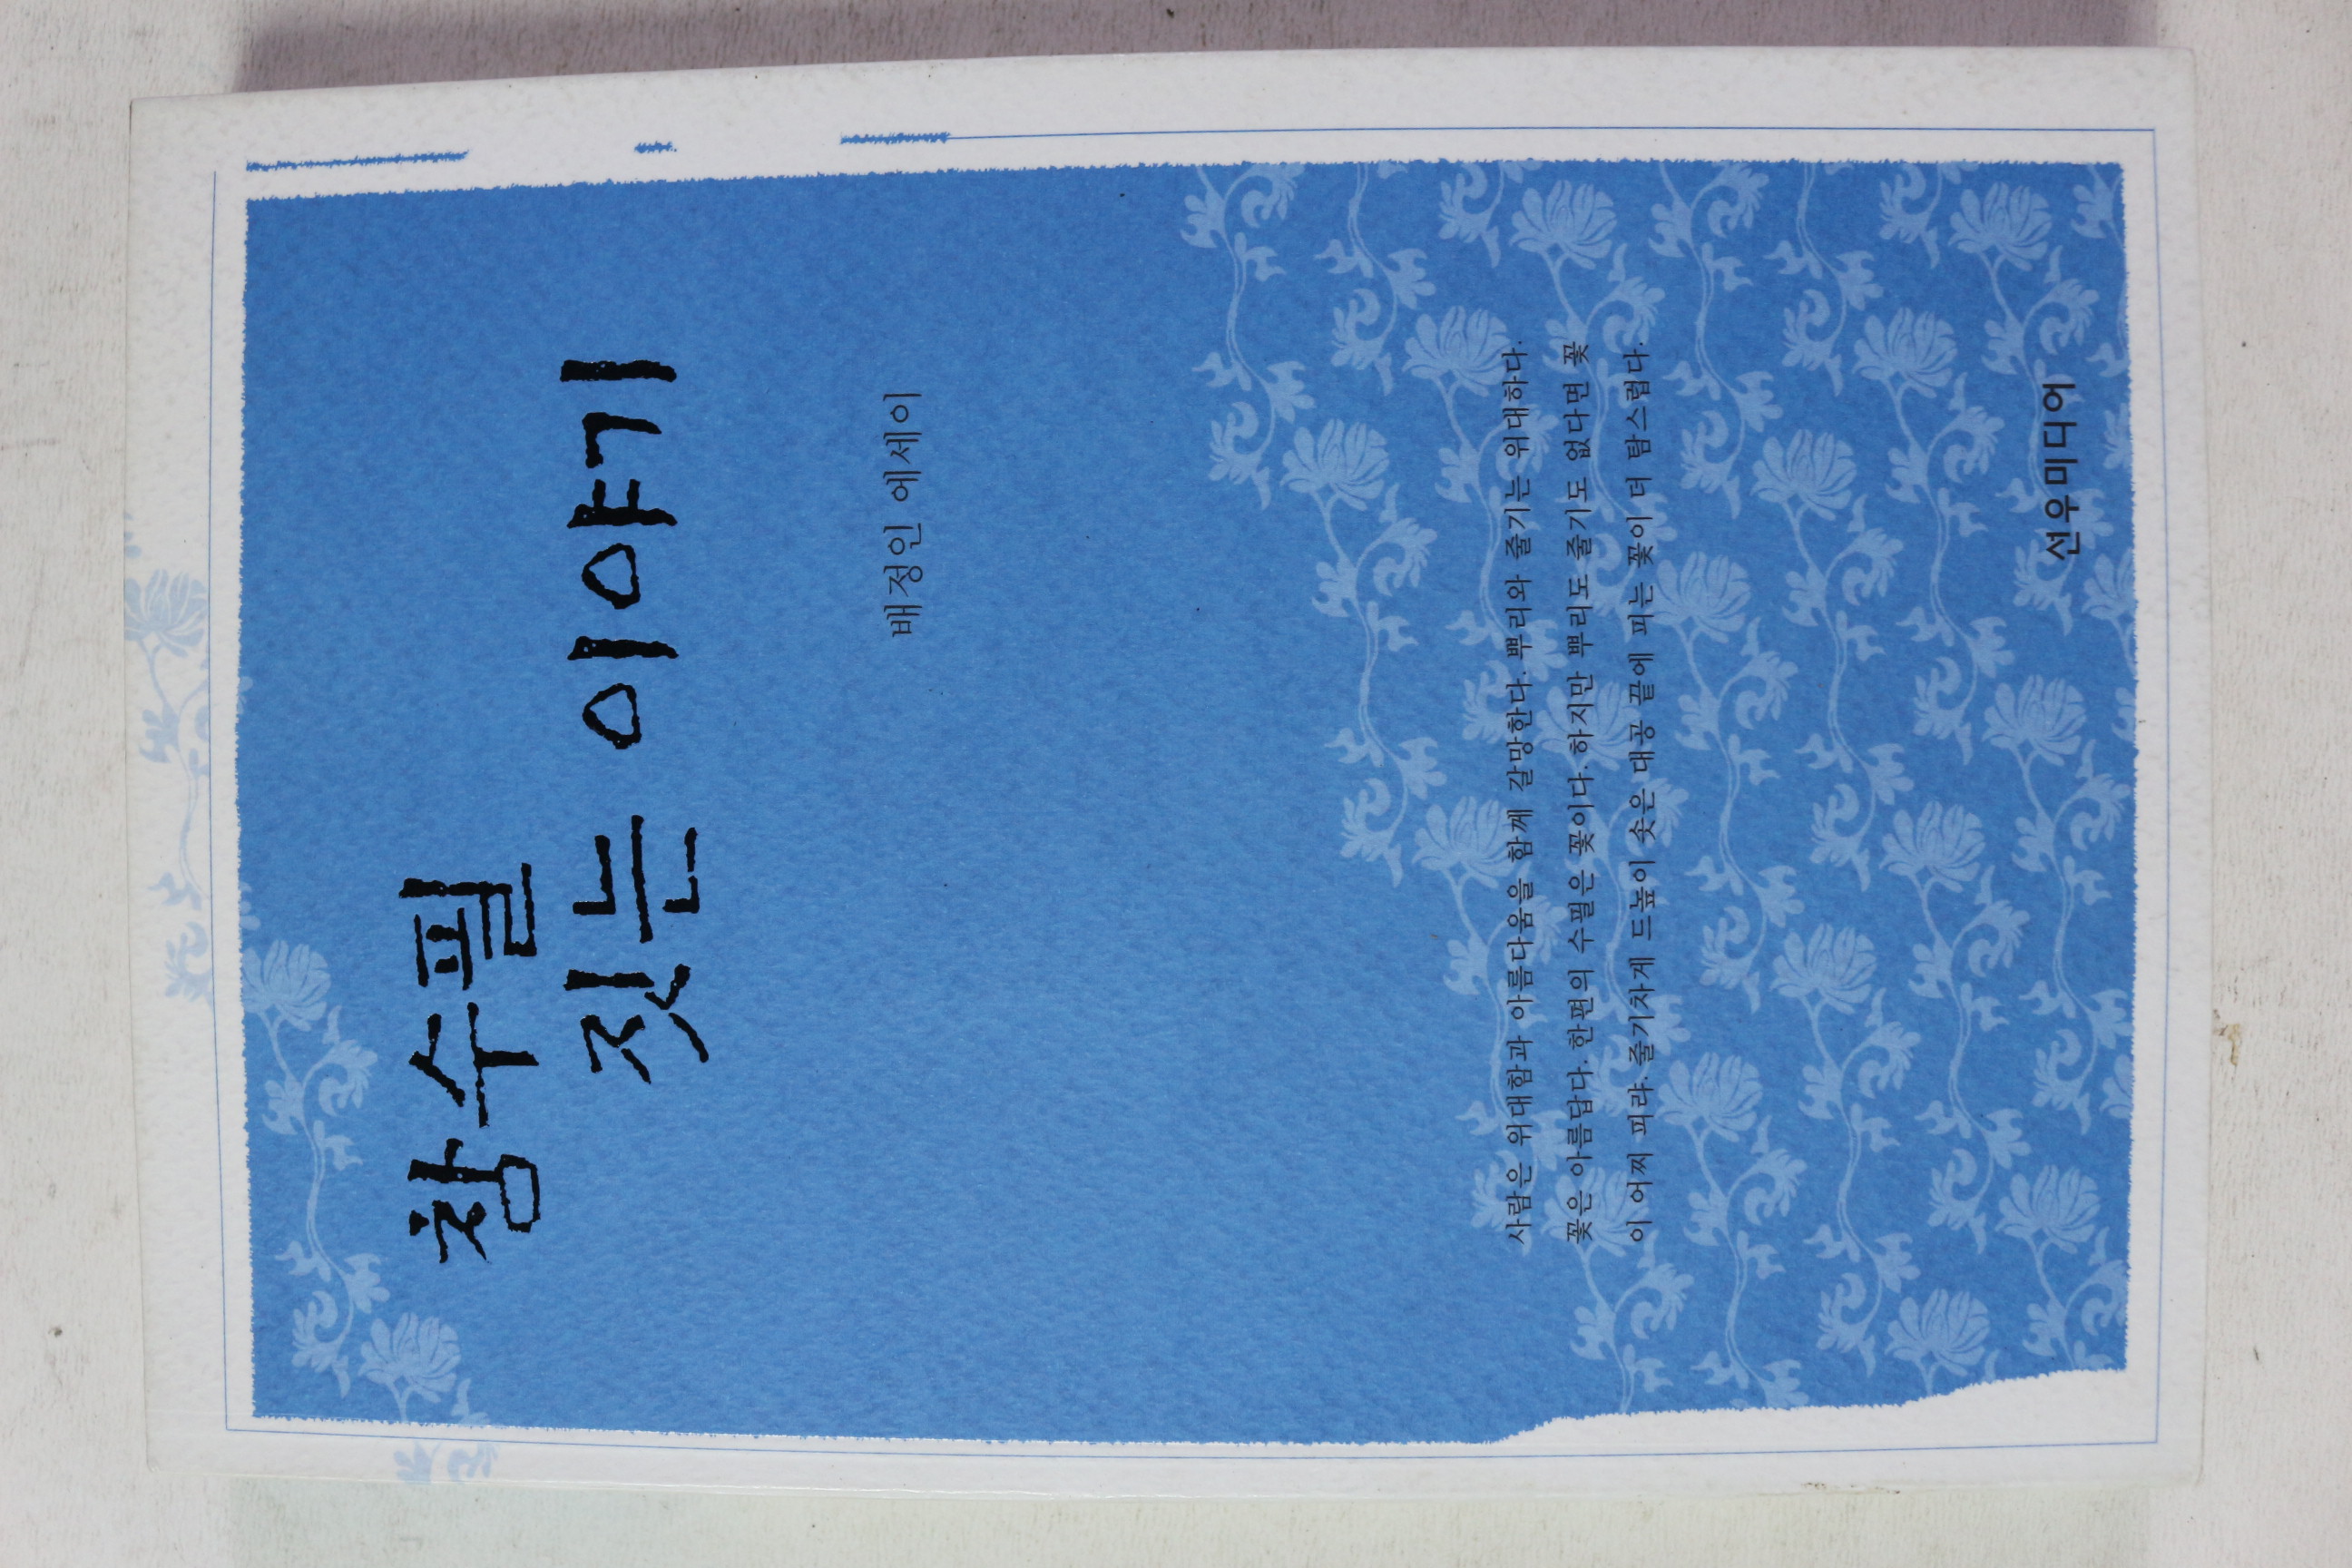 참수필
짓는 이야기
배정인 에세이
사람은 위대함과 아름다움을 함께 갈망한다. 뿌리와 줄기는 위대하다.
꽃은 아름답다. 한편의 수필은 꽃이다. 하지만 뿌리도 줄기도 없다면 꽃
이 어찌 피랴. 줄기차게 드높이 솟은 대공 끝에 피는 꽃이 더 탐스럽다.
선우미디어